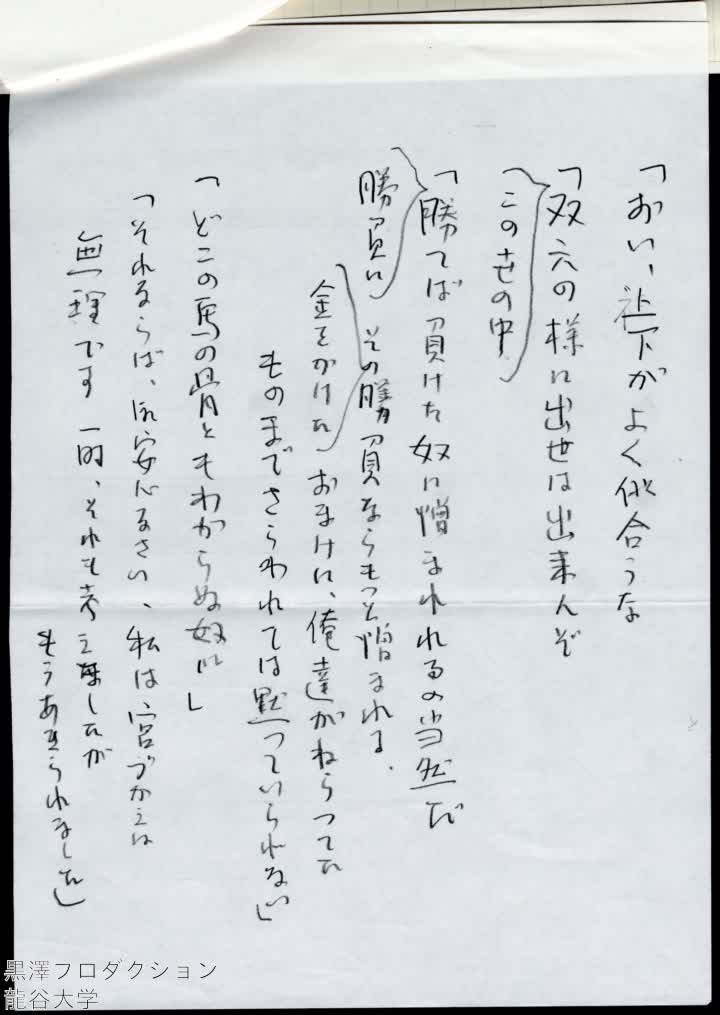 「おい、裃がよく似合うな
「双六の様に出世は出来んぞ
「この世の中
「勝てば負けた奴に憎まれるの当然だ
勝負に その勝負ならもっと憎まれる.
金をかけた おまけに、俺達がねらってた
ものまでさらわれては黙っていられない」
「どこの馬の骨ともわからぬ奴に」
「それならば、御安心なさい、私は宮づかえは
無理です 一時、それも考えましたが
もうあきらめました」
黒澤プロダクション
龍谷大学